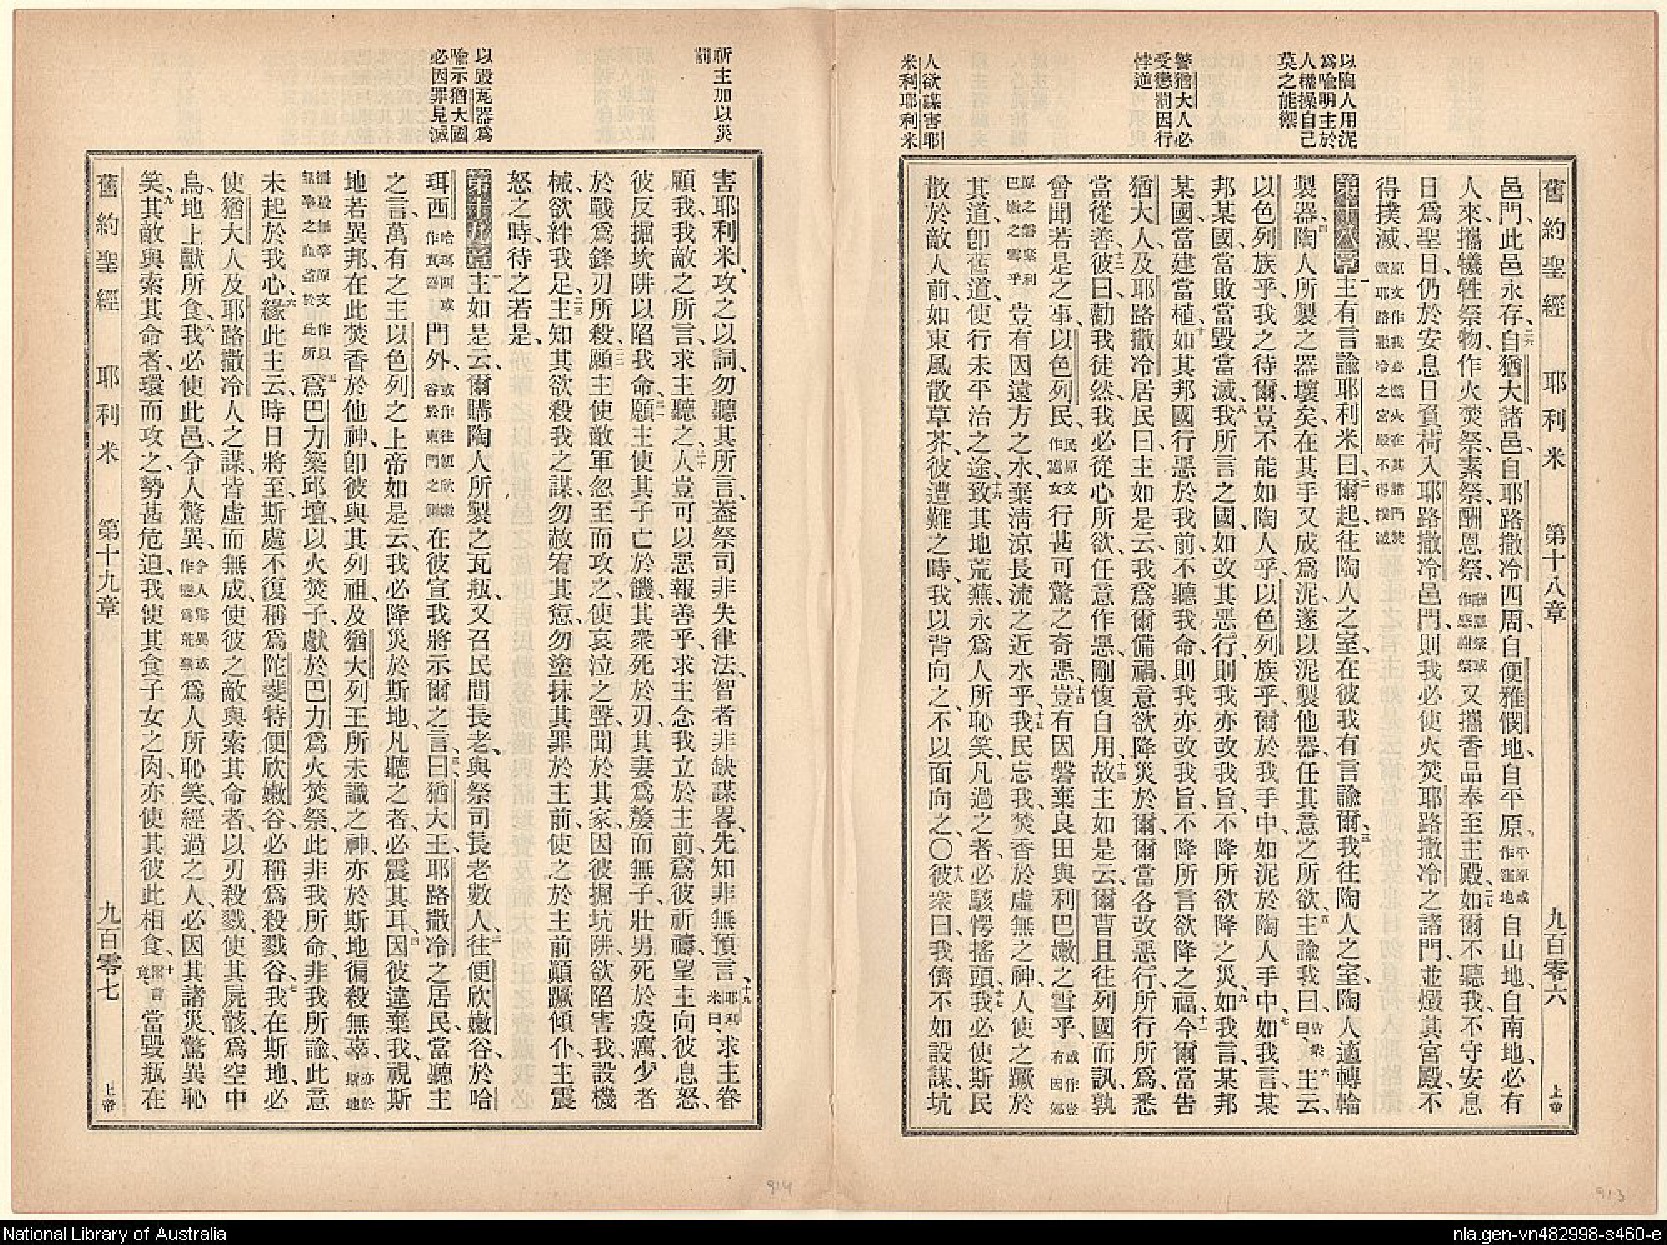 舊約聖經 耶利米 第十八章 九百零六 上帝
邑門、此邑永存、二六自猶大諸邑、自耶路撒冷四周、自便雅憫地、自平原、平原或作窪地自山地、自南地、必有
人來、攜犧牲祭物、作火焚祭、素祭、酬恩祭、酬恩祭或作感謝祭又攜香品奉至主殿、二七如爾不聽我、不守安息
日爲聖日、仍於安息日負荷入耶路撒冷邑門、則我必使火焚耶路撒冷之諸門、並燬其宮殿、不
得撲滅、
第十八章一主有言諭耶利米曰、二爾起、往陶人之室、在彼我有言諭爾、三我往陶人之室、陶人適轉輪
製器、四陶人所製之器壞矣、在其手又成爲泥、遂以泥製他器、任其意之所欲、五主諭我曰、六主云、
以色列族乎、我之待爾、豈不能如陶人乎、以色列族乎、爾於我手中、如泥於陶人手中、七如我言、某
邦某國、當敗當毀當滅、八我所言之國、如改其惡行、則我亦改我旨、不降所欲降之災、九如我言、某邦
某國、當建當植、十如其邦國行惡於我前、不聽我命、則我亦改我旨、不降所言欲降之福、十一今爾當告
猶大人、及耶路撒冷居民曰、主如是云、我爲爾備禍、意欲降災於爾、爾當各改惡行、所行所爲、悉
當從善、十二彼曰、勸我徒然、我必從心所欲、任意作惡、剛愎自用、十三故主如是云、爾曹且往列國而訊、孰
曾聞若是之事、以色列民、民原文作處女行甚可驚之奇惡、十四豈有因磐棄良田與利巴嫩之雪乎、
豈有因遠方之水、棄清涼長流之近水乎、十五我民忘我、焚香於虛無之神、人使之蹶於
其道、卽舊道、使行未平治之途、十六致其地荒蕪、永爲人所恥笑、凡過之者、必駭愕搖頭、十七我必使斯民
散於敵人前、如東風散草芥、彼遭難之時、我以背向之、不以面向之、〇十八彼衆曰、我儕不如設謀坑
以陶人用泥
爲喻明主於
人權操自己
莫之能禦
警猶大人必
受懲罰因行
悖逆
人欲謀害耶
米利耶利米
害耶利米、攻之以詞、勿聽其所言、蓋祭司非失律法、智者非缺謀畧、先知非無預言、十九耶利米曰、求主眷
顧我、我敵之所言、求主聽之、二十人豈可以惡報善乎、求主念我立於主前、爲彼祈禱、望主向彼息怒、
彼反掘坎阱以陷我命、二一願主使其子亡於饑、其衆死於刃、其妻爲嫠而無子、壯男死於疫癘、少者
於戰爲鋒刃所殺、二二願主使敵軍忽至而攻之、使哀泣之聲、聞於其家、因彼掘坑阱欲陷害我、設機
械欲絆我足、二三主知其欲殺我之謀、勿赦宥其愆、勿塗抹其罪於主前、使之於主前顛蹶傾仆、主震
怒之時、待之若是、
第十九章一主如是云、爾購陶人所製之瓦瓶、又召民間長老、與祭司長老數人、二往便欣嫩谷、於哈
珥西門外、在彼宣我將示爾之言、三曰、猶大王、耶路撒冷之居民、當聽主
之言、萬有之主以色列之上帝如是云、我必降災於斯地、凡聽之者、必震其耳、四因彼違棄我、視斯
地若異邦、在此焚香於他神、卽彼與其列祖、及猶大列王所未識之神、亦於斯地徧殺無辜、
五爲巴力築邱壇、以火焚子、獻於巴力爲火焚祭、此非我所命、非我所諭、此意
未起於我心、六緣此主云、時日將至、斯處不復稱爲陀斐特便欣嫩谷、必稱爲殺戮谷、七我在斯地、必
使猶大人及耶路撒冷人之謀、皆虛而無成、使彼之敵與索其命者、以刃殺戮、使其屍骸、爲空中
鳥、地上獸所食、八我必使此邑、令人驚異、令人驚異或作變爲荒蕪爲人所恥笑、經過之人、必因其諸災、驚異恥
笑、九其敵與索其命者、環而攻之、勢甚危迫、我使其食子女之肉、亦使其彼此相食、十當毀瓶在
舊約聖經 耶利米 第十九章 九百零七 上帝
祈主加以災
罰
以毀瓦器爲
喻示猶大國
必因罪見滅
914
913
National Library of Australia
nla.gen-vn482998-s460-e